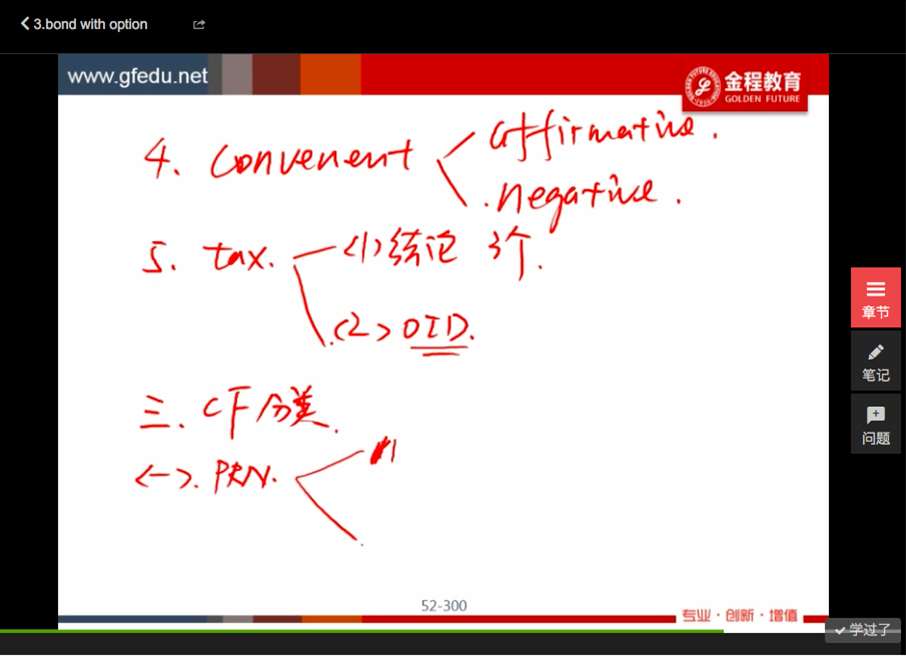 3.bond with option
www.gfedu.net
金程教育
GOLDEN FUTURE
4. Convenent
affirmative.
.negative.
5. tax. (1)结论 3个.
(2)OID.
三. CF分类.
(一). PRN.
章节
笔记
问题
52-300
专业·创新·增值
学过了